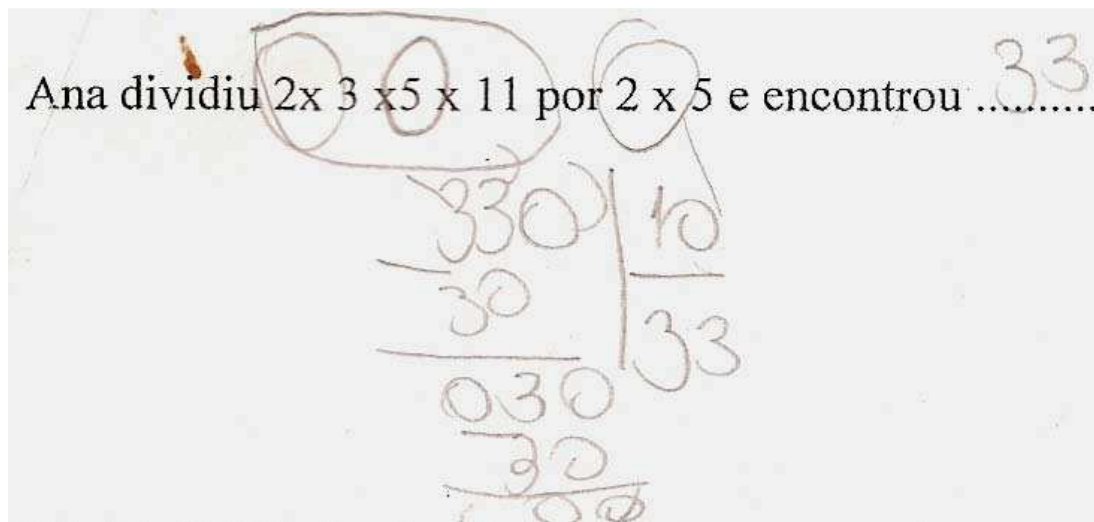 33
Ana dividiu 2x 3 x5 x 11 por 2 x 5 e encontrou ..........
330 10
30 33
030
30
00